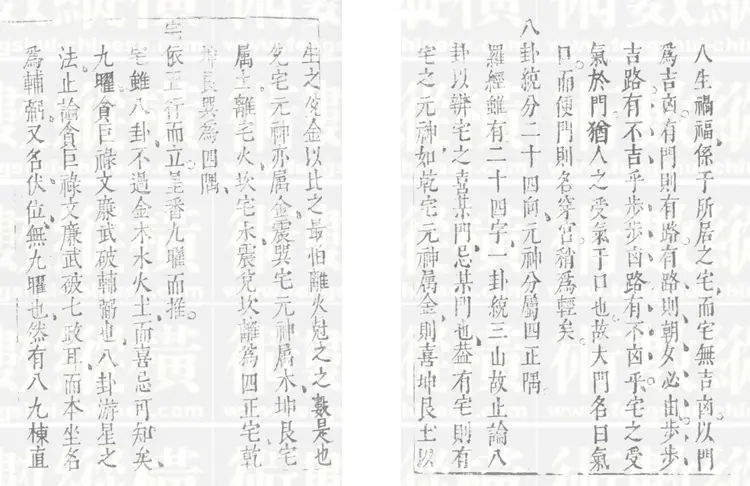 人生禍福係乎所居之宅而宅無吉凶以門
為吉凶有門則有路有路則朝夕必由步步
吉路有不吉乎步步凶路有不凶乎宅之受
氣於門猶人之受氣于口也故大門名曰氣
口而便門則名穿宮稍為輕矣
八卦統分二十四向元神分屬四正隅
羅經雖有二十四字一卦統三山故止論八
卦以辨宅之喜某門忌某門也蓋有宅則有
宅之元神如乾宅元神屬金則喜坤艮土以
生之兌金以比之最怕離火尅之之數是也
兌宅元神亦屬金震巽宅元神屬木坤艮宅
屬土離宅火坎宅水震兌坎離為四正宅乾
坤艮巽為四隅
宅依正行而立星番九曜而推
宅雖八卦不過金木水火土而喜忌可知矣
九曜貪巨祿文廉武破輔弼也八卦游星之
法止論貪巨祿文廉武破七政耳而本坐名
為輔弼又名伏位無九曜也然有八九棟直